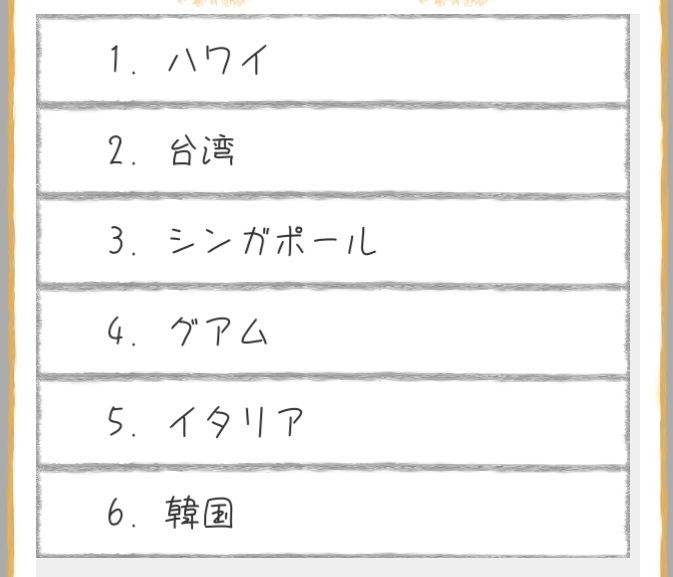 1. ハワイ
2. 台湾
3. シンガポール
4. グアム
5. イタリア
6. 韓国